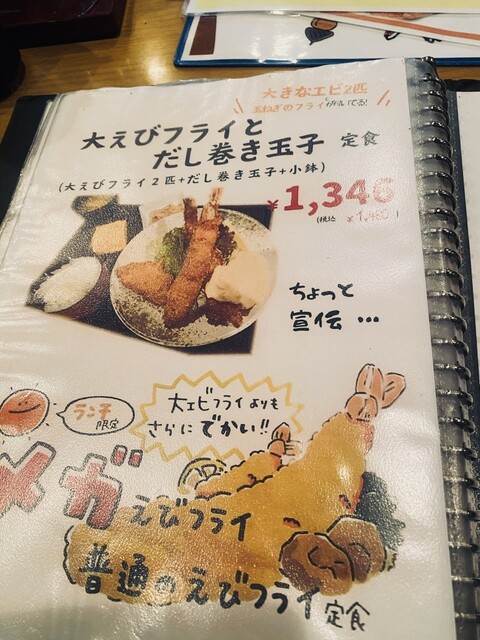 大きなエビ2匹
玉ねぎのフライ
大えびフライと
だし巻き玉子 定食
(大えびフライ2匹+だし巻き玉子+小鉢)
¥1,346
(税込 ¥1,480)
ちょっと
宣伝…
ランチ
限定
大エビフライよりも
さらにでかい!!
メガえびフライ
普通のえびフライ定食